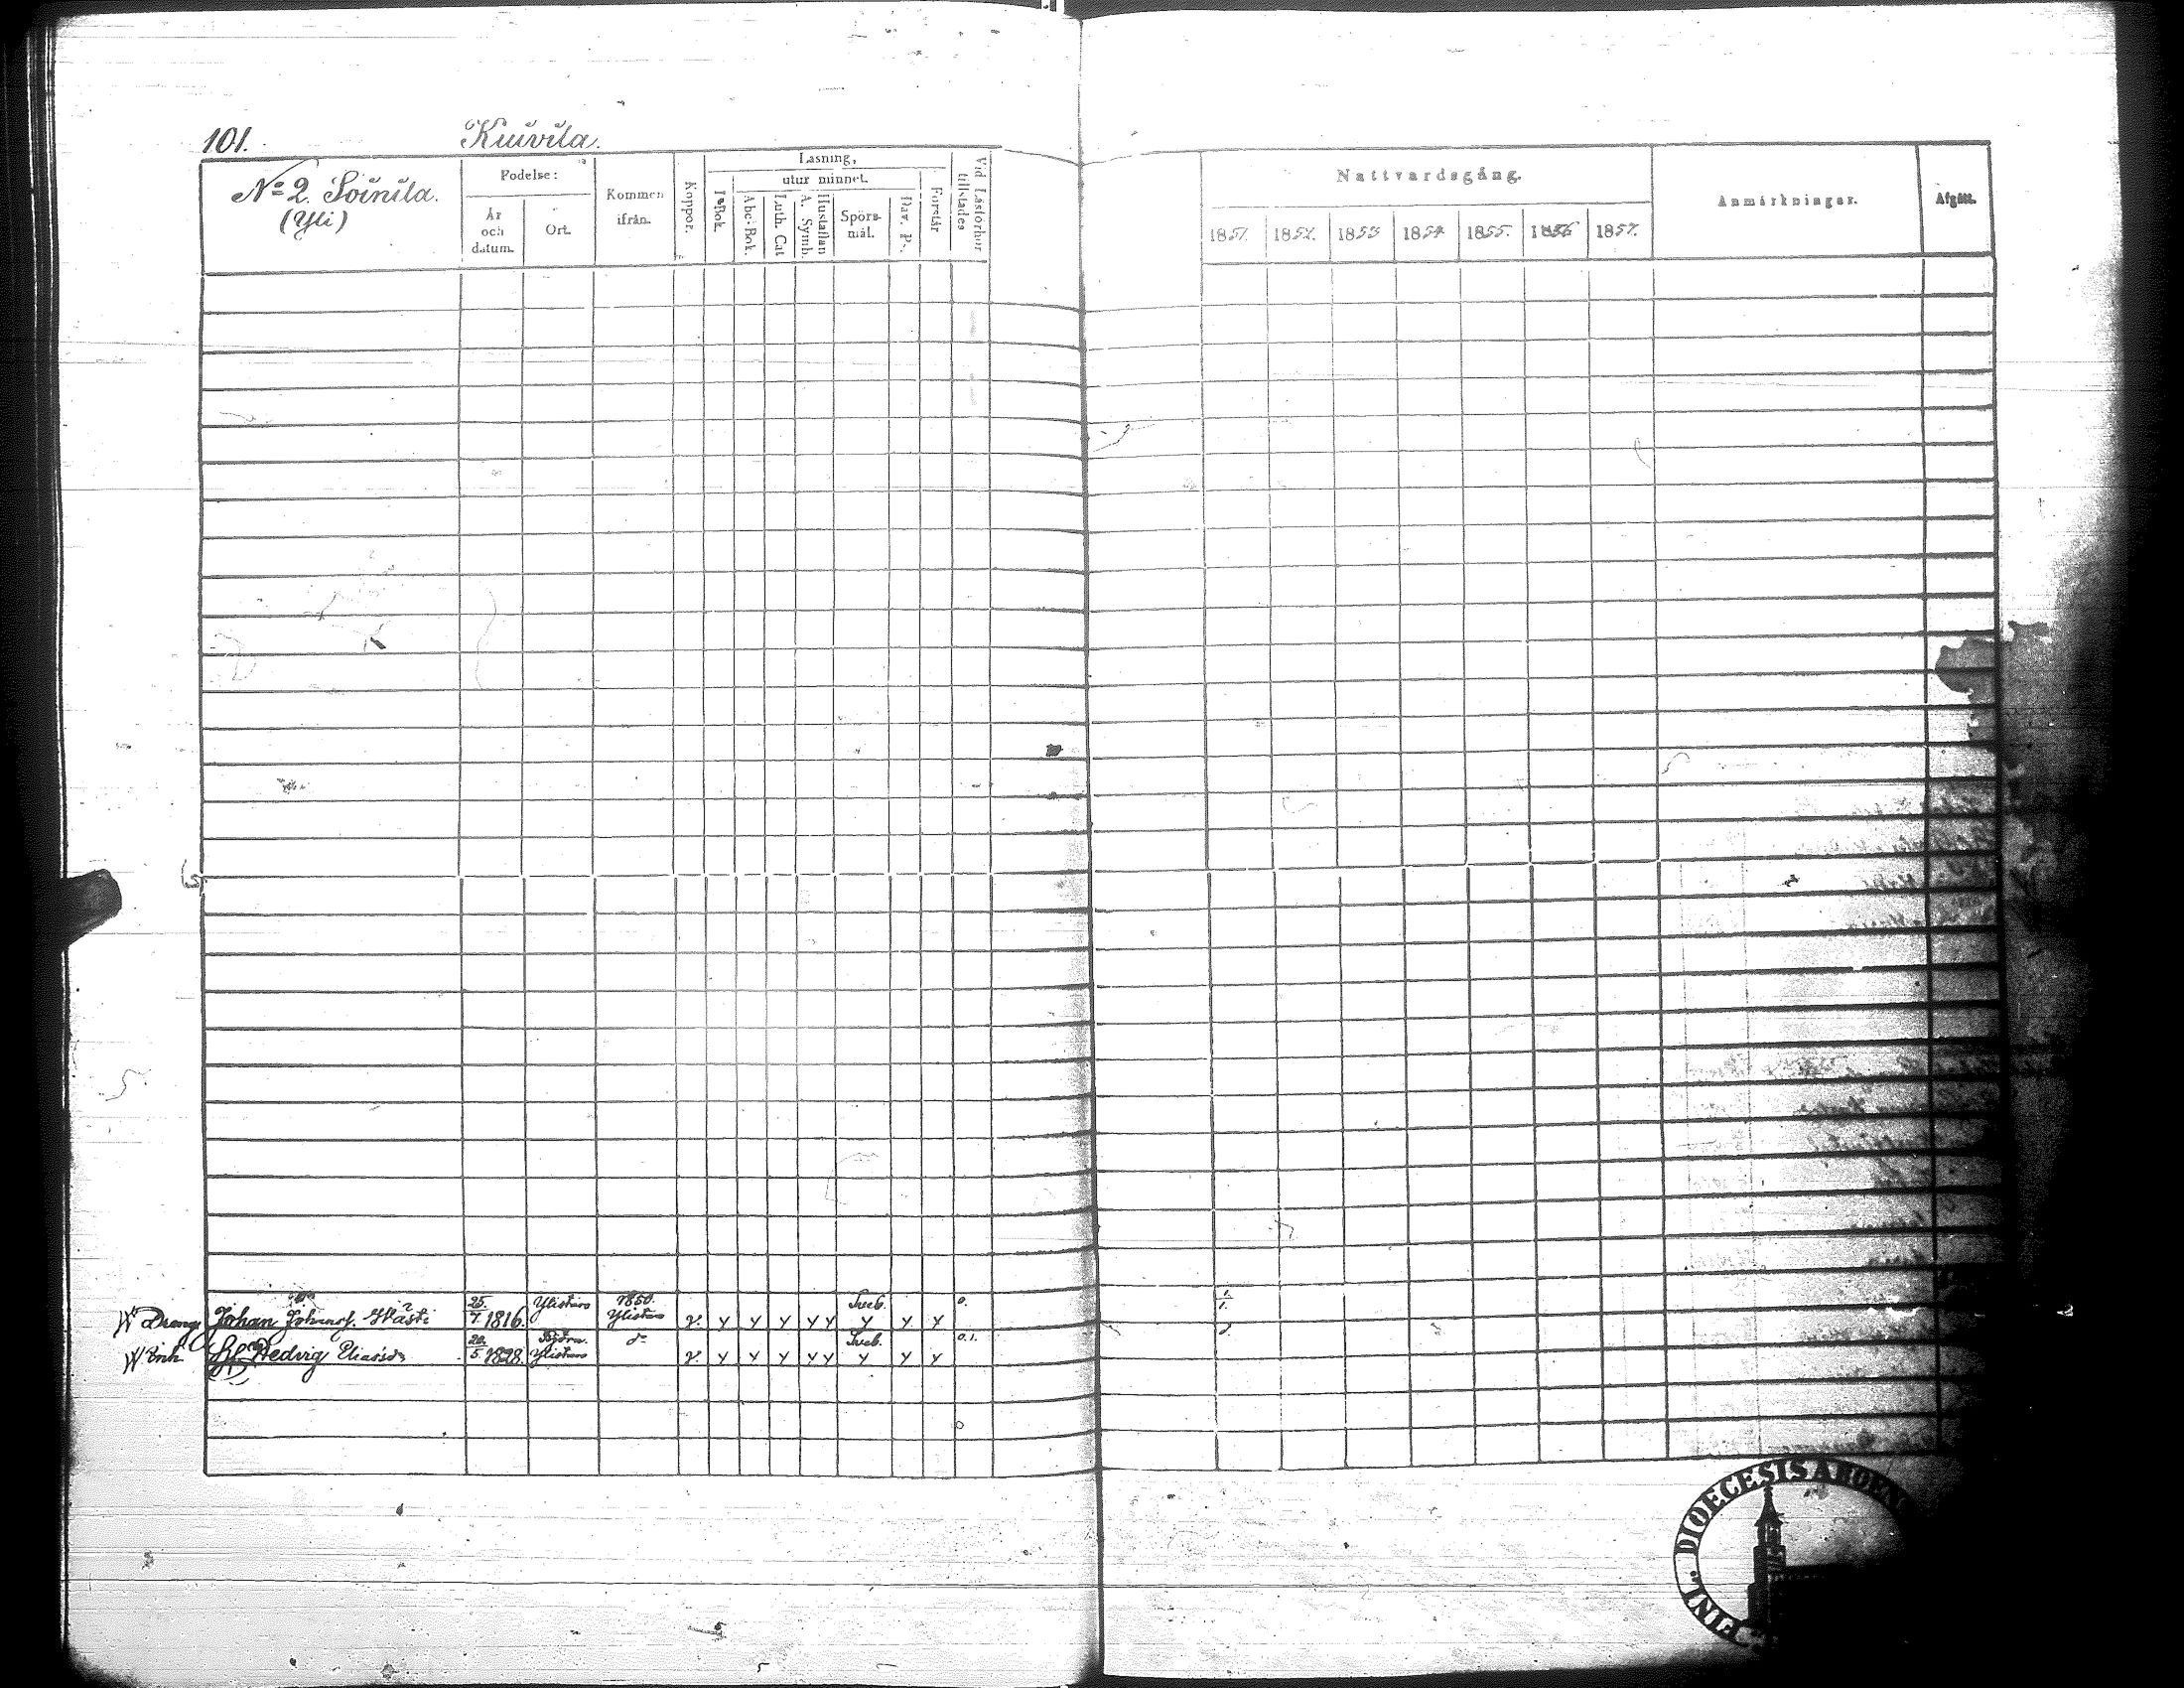 101. Kuivila.
No 2. Soinila.
(Yli)
Födelse:
År och datum.
Ort.
Kommen ifrån.
Koppor.
Läsning,
utur minnet.
I Bok.
Abc-Bok.
Luth. Cat
Hustaflan A. Symb.
Spörsmål.
Dav. Ps.
Förstår
Vid Läsförhör tillstädes
Nattvardsgång.
1851. 1852. 1853 1854 1855. 1856 1857.
Anmärkningar.
Afgått.
25. Ylistaro 1850. Sveb. 0. 1.
Dräng Johan Johansf. 7. 1816. Ylistaro v. y y y y y y y y 1.
20. d:o Sveb. 0.1.
Hedvig Eliasd:r 5. 1828. Ylistaro v. y y y y y y y y
0
FINL. DIOECESIS ABOEN